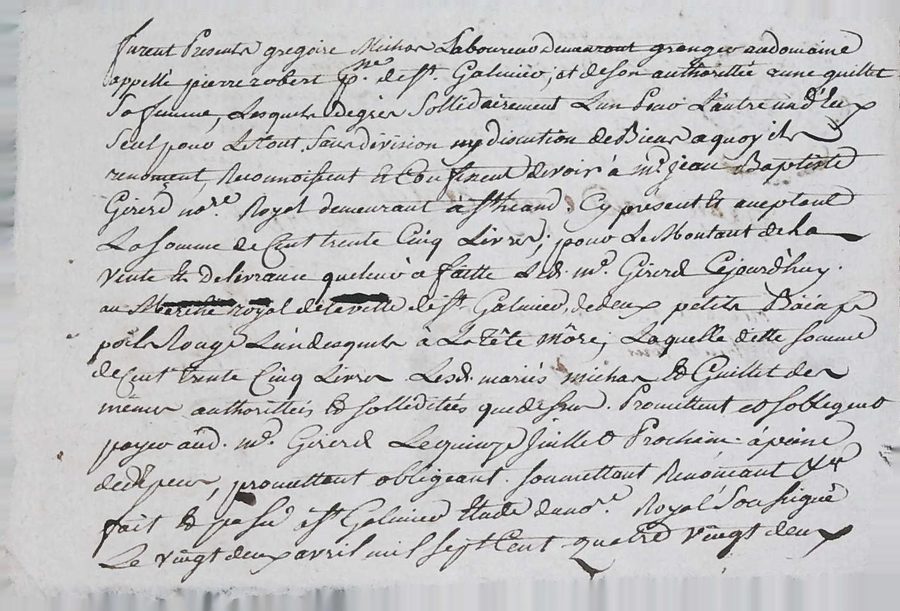 furent Presents gregoire Michas Laboureur demeurant granger audomaine
appellé pierre robert p.ne de st. Galmier, et deson authorittée anne guillet
Sa femme, Lesquels degrés Sollidairement Lun pour L'autre und'Eux
Seul pour Letout, Sans division ny discution de Biens aquoy ils
renoncent, Reconnoissent Et Confessent devoir à mr. jean Baptiste
Girerd nore. Royal demeurant à st heand. Cy present Et aceptant
La somme de Cent trente Cinq Livres, pour Le Montant dela
Vente Et Delivrance queleur a faitte Led. mr. Girerd Cejourd'huy.
au Marché royal delaville de st. Galmier, dedeux petits Bœufs
poils Rouge L'undesquels à La Tête More; Laquelle ditte somme
de Cent trente Cinq Livres Lesd. mariés michas Et Guillet des
mêmes authorittés Et sollidités quedessus. Promettent et sobligent
payer aud. mr. Girerd Lequinze Juillet Prochain àpeine
dedépens, promettant obligeant. soumettant Renonceant Xr
fait Et passé a st Galmier Etude dunore. Royal Soussigné
Le vingt deux avril mil sept Cent quatre vingt deux